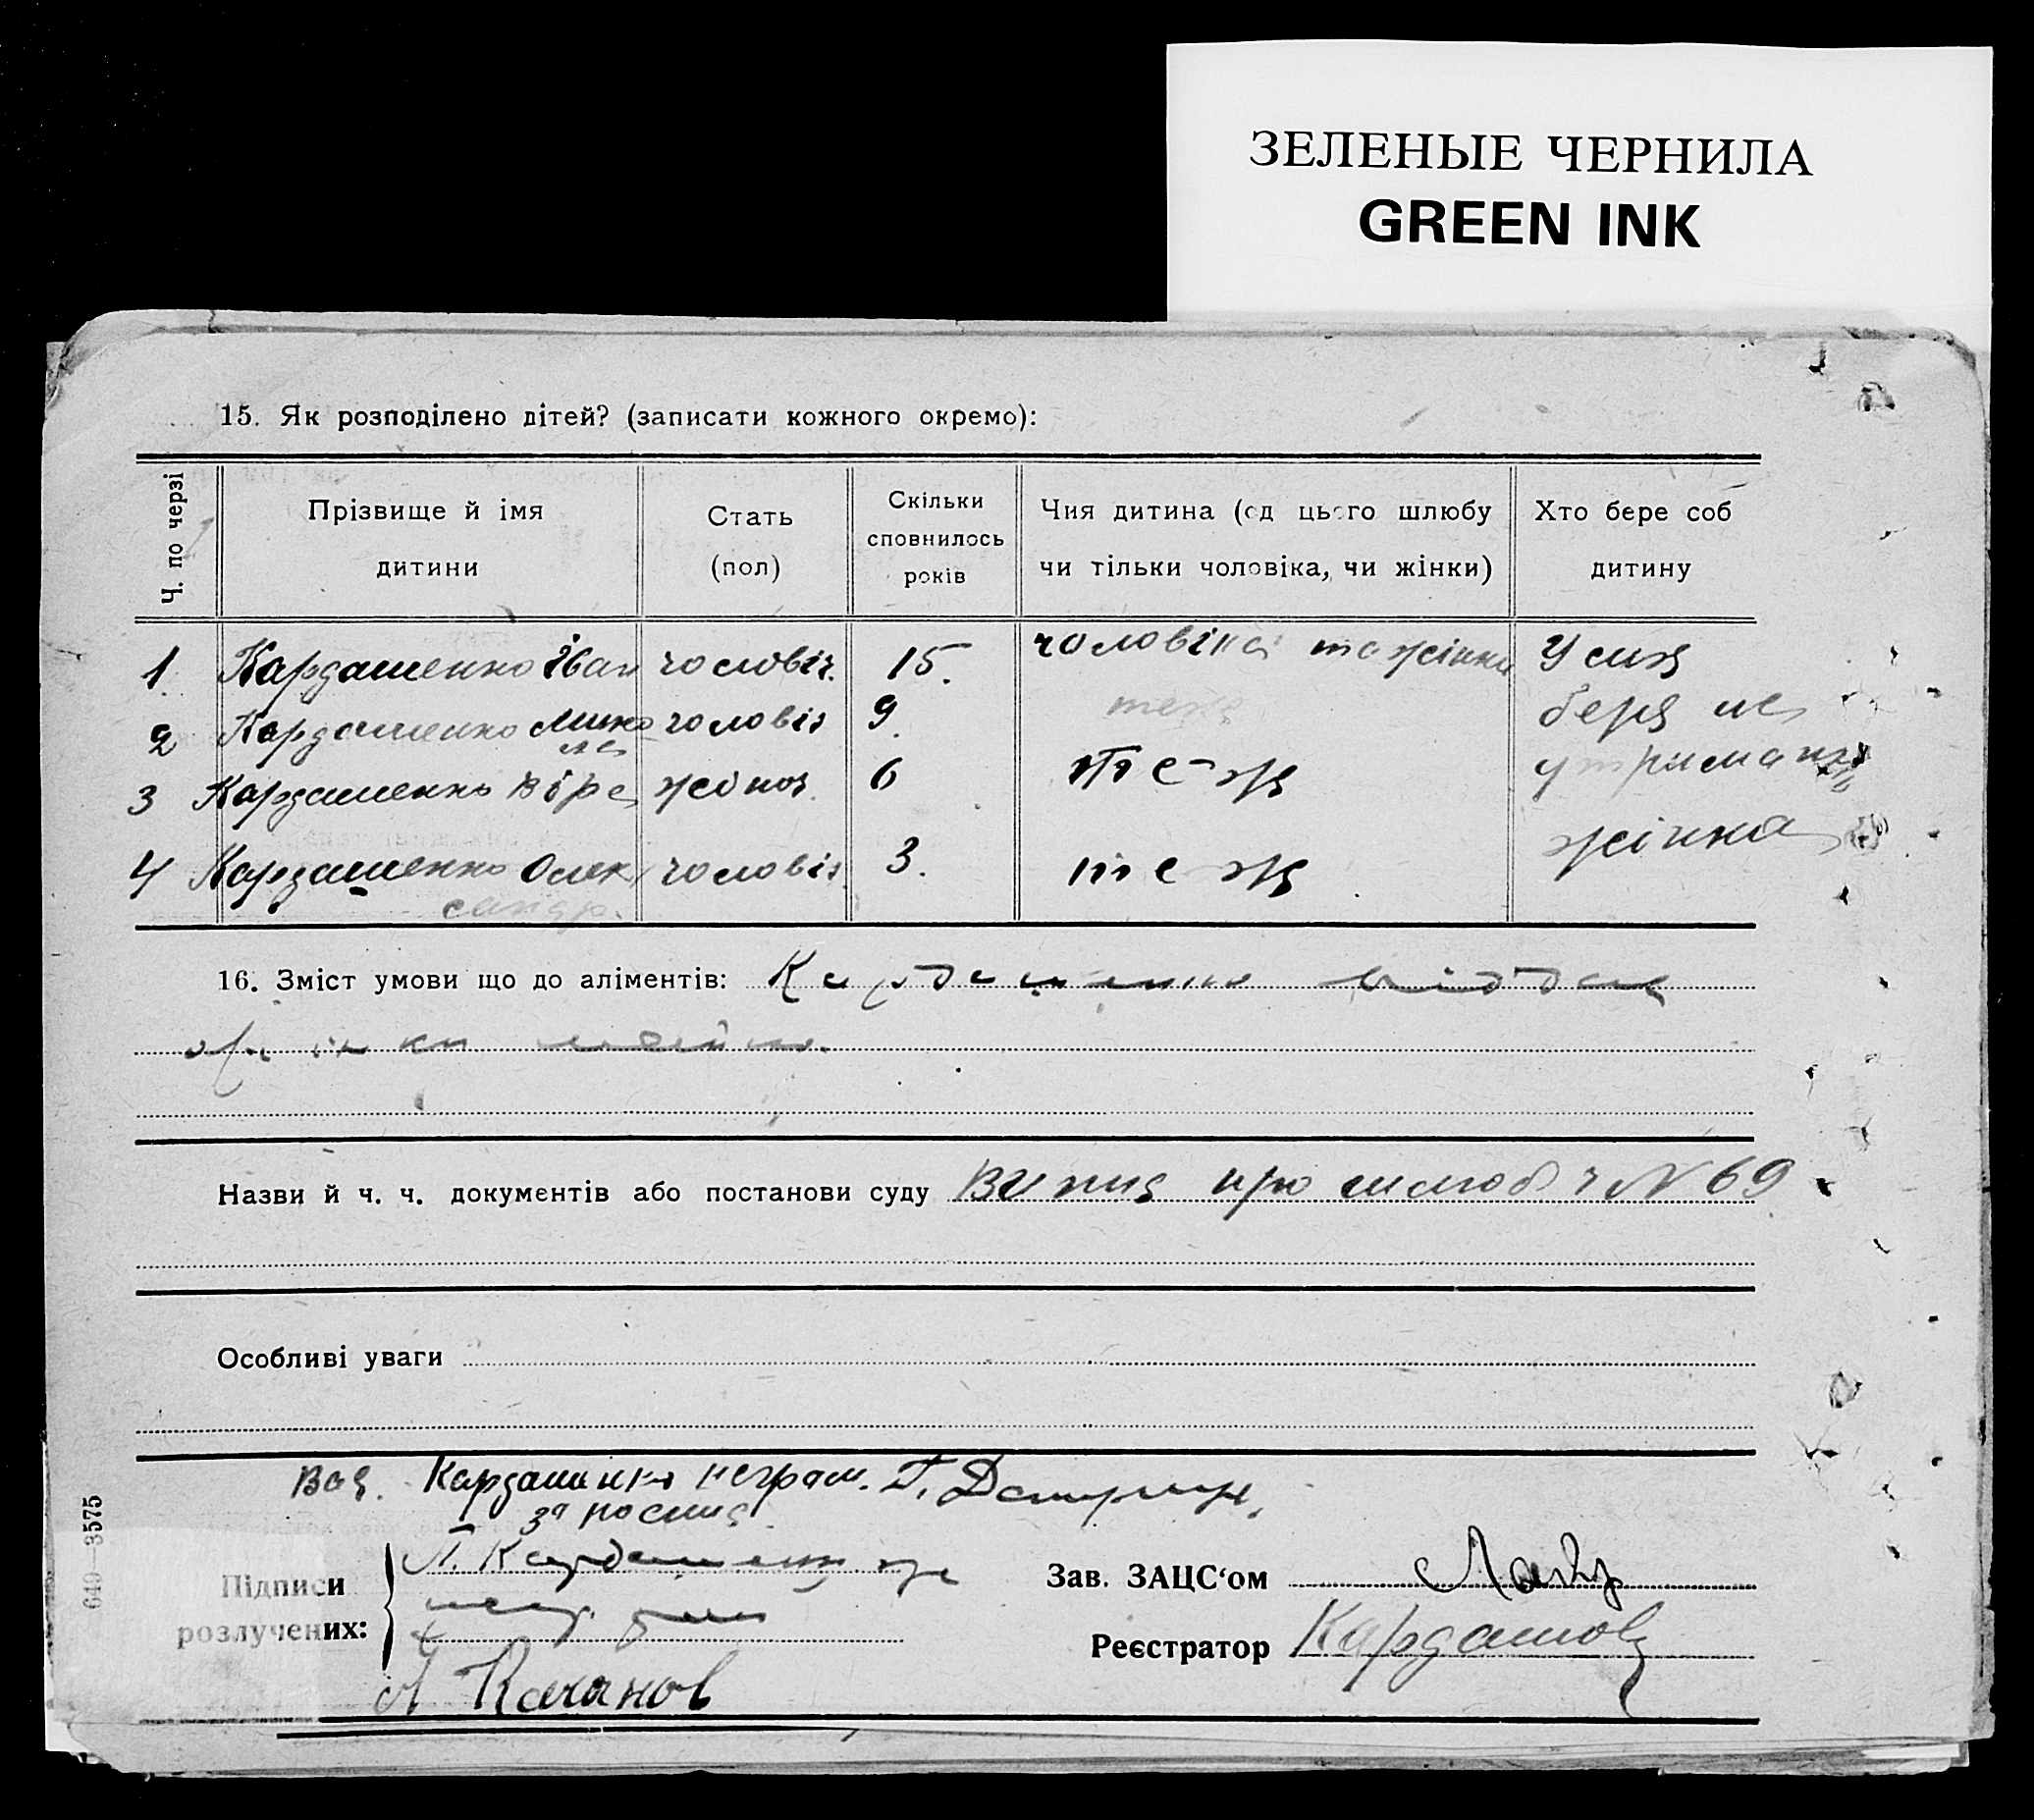 ЗЕЛЕНЫЕ ЧЕРНИЛА
GREEN INK
15. Як розподілено дітей? (записати кожного окремо):
Ч. по черзі
Прізвище й імя дитини
Стать (пол)
Скільки сповнилось років
Чия дитина (од цього шлюбу чи тільки чоловіка, чи жінки)
Хто бере соб дитину
1. Кардашенко Іван чоловіч. 15. чоловіка та жінки
2 Кардашенко Мико чоловіч 9. теж
ла
3 Кардашенко Віра жіноч. 6 теж
4 Кардашенко Олек чоловіч. 3. теж жінка
сандр.
16. Зміст умови що до аліментів: Кардашенко
Назви й ч. ч. документів або постанови суду про шлюб ч N 69
Особливі уваги
Кардашенко неграм.
за
Підписи розлучених:
П. Кардашенко
Зав. ЗАЦС‘ом
Реєстратор
А Качанов
649—3575